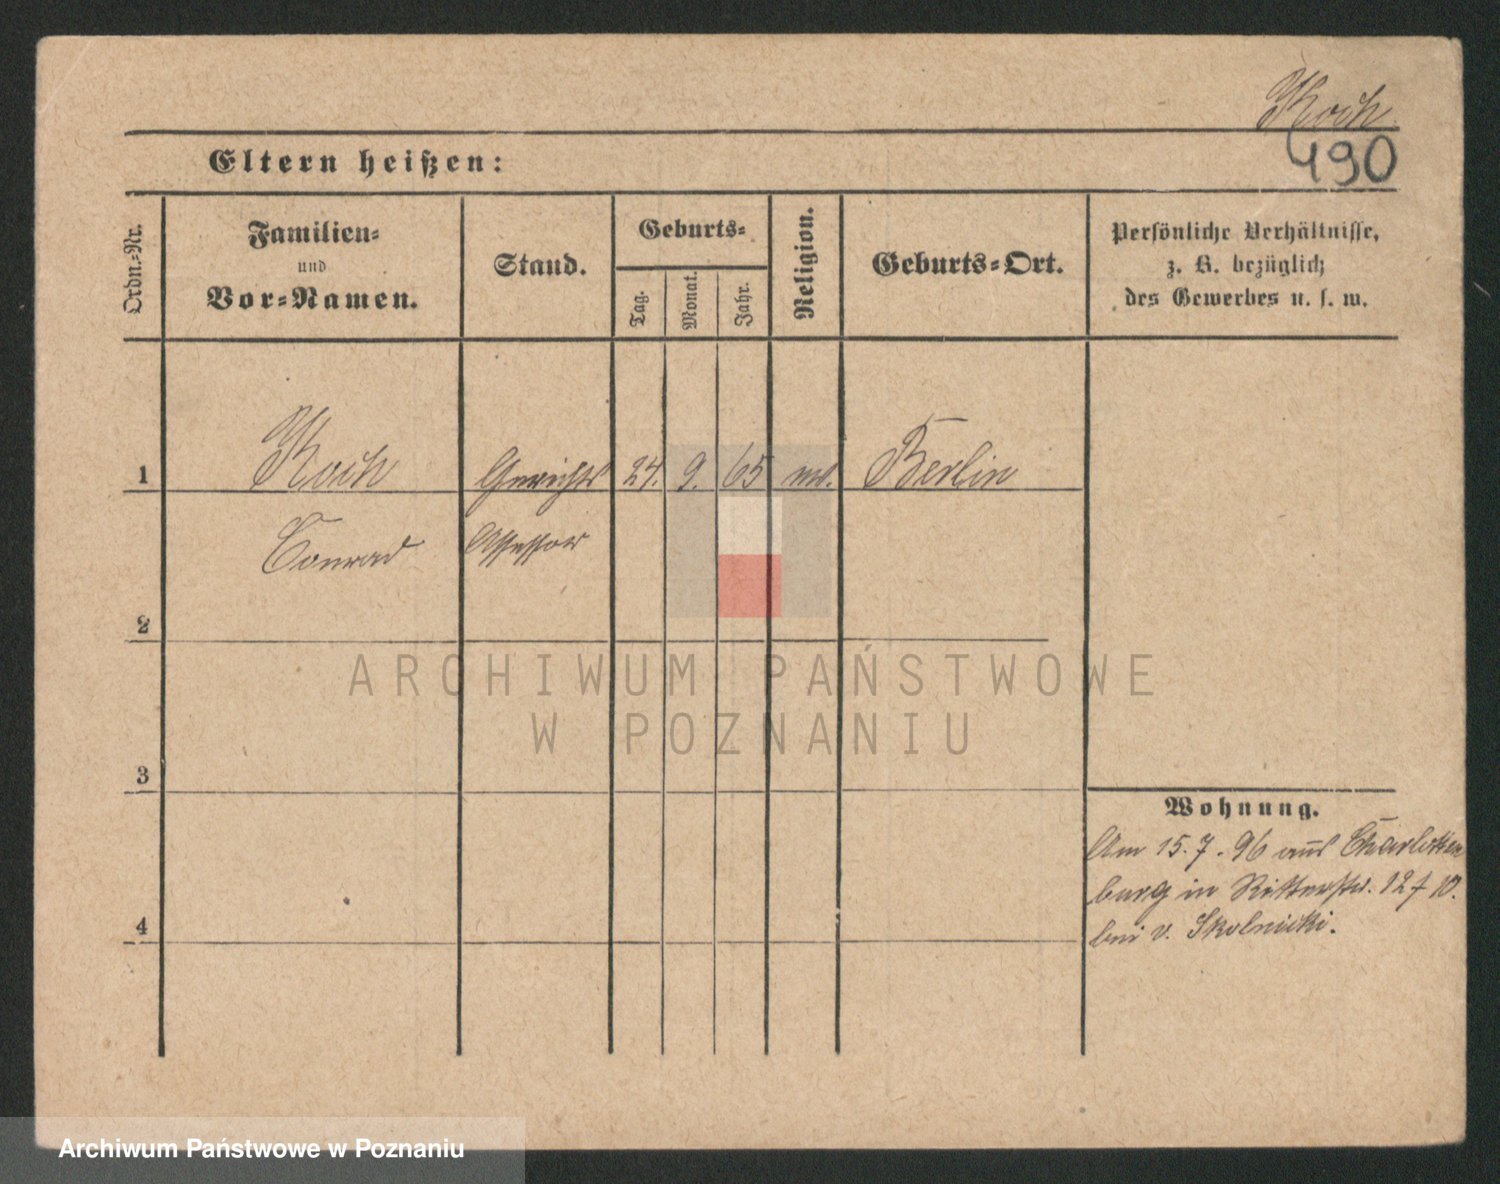 Koch
490
Eltern heißen:
Ordn.-Nr.
Familien-
und
Vor-Namen.
Stand.
Geburts-
Tag.
Monat.
Jahr.
Religion.
Geburts-Ort.
Persönliche Verhältnisse,
z. B. bezüglich
des Gewerbes u. s. w.
1
Koch
Gerichts
24.
9.
65
Berlin
Conrad
Assessor
2
ARCHIWUM PAŃSTWOWE
W POZNANIU
3
Wohnung.
Am 15. 7. 96 aus Charlotten
burg in Ritterstr. 12
bei v. Skolnicki.
4
Archiwum Państwowe w Poznaniu